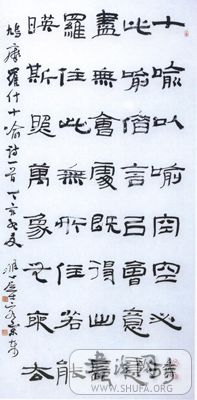 十喻以喻空空必待
此喻借言㠯會意意
盡無會處既得出長
羅住此無所住若能
暎斯照萬象无來去
鳩摩羅什十喻诗一首 丁亥
WWW.SHUFA.ORG